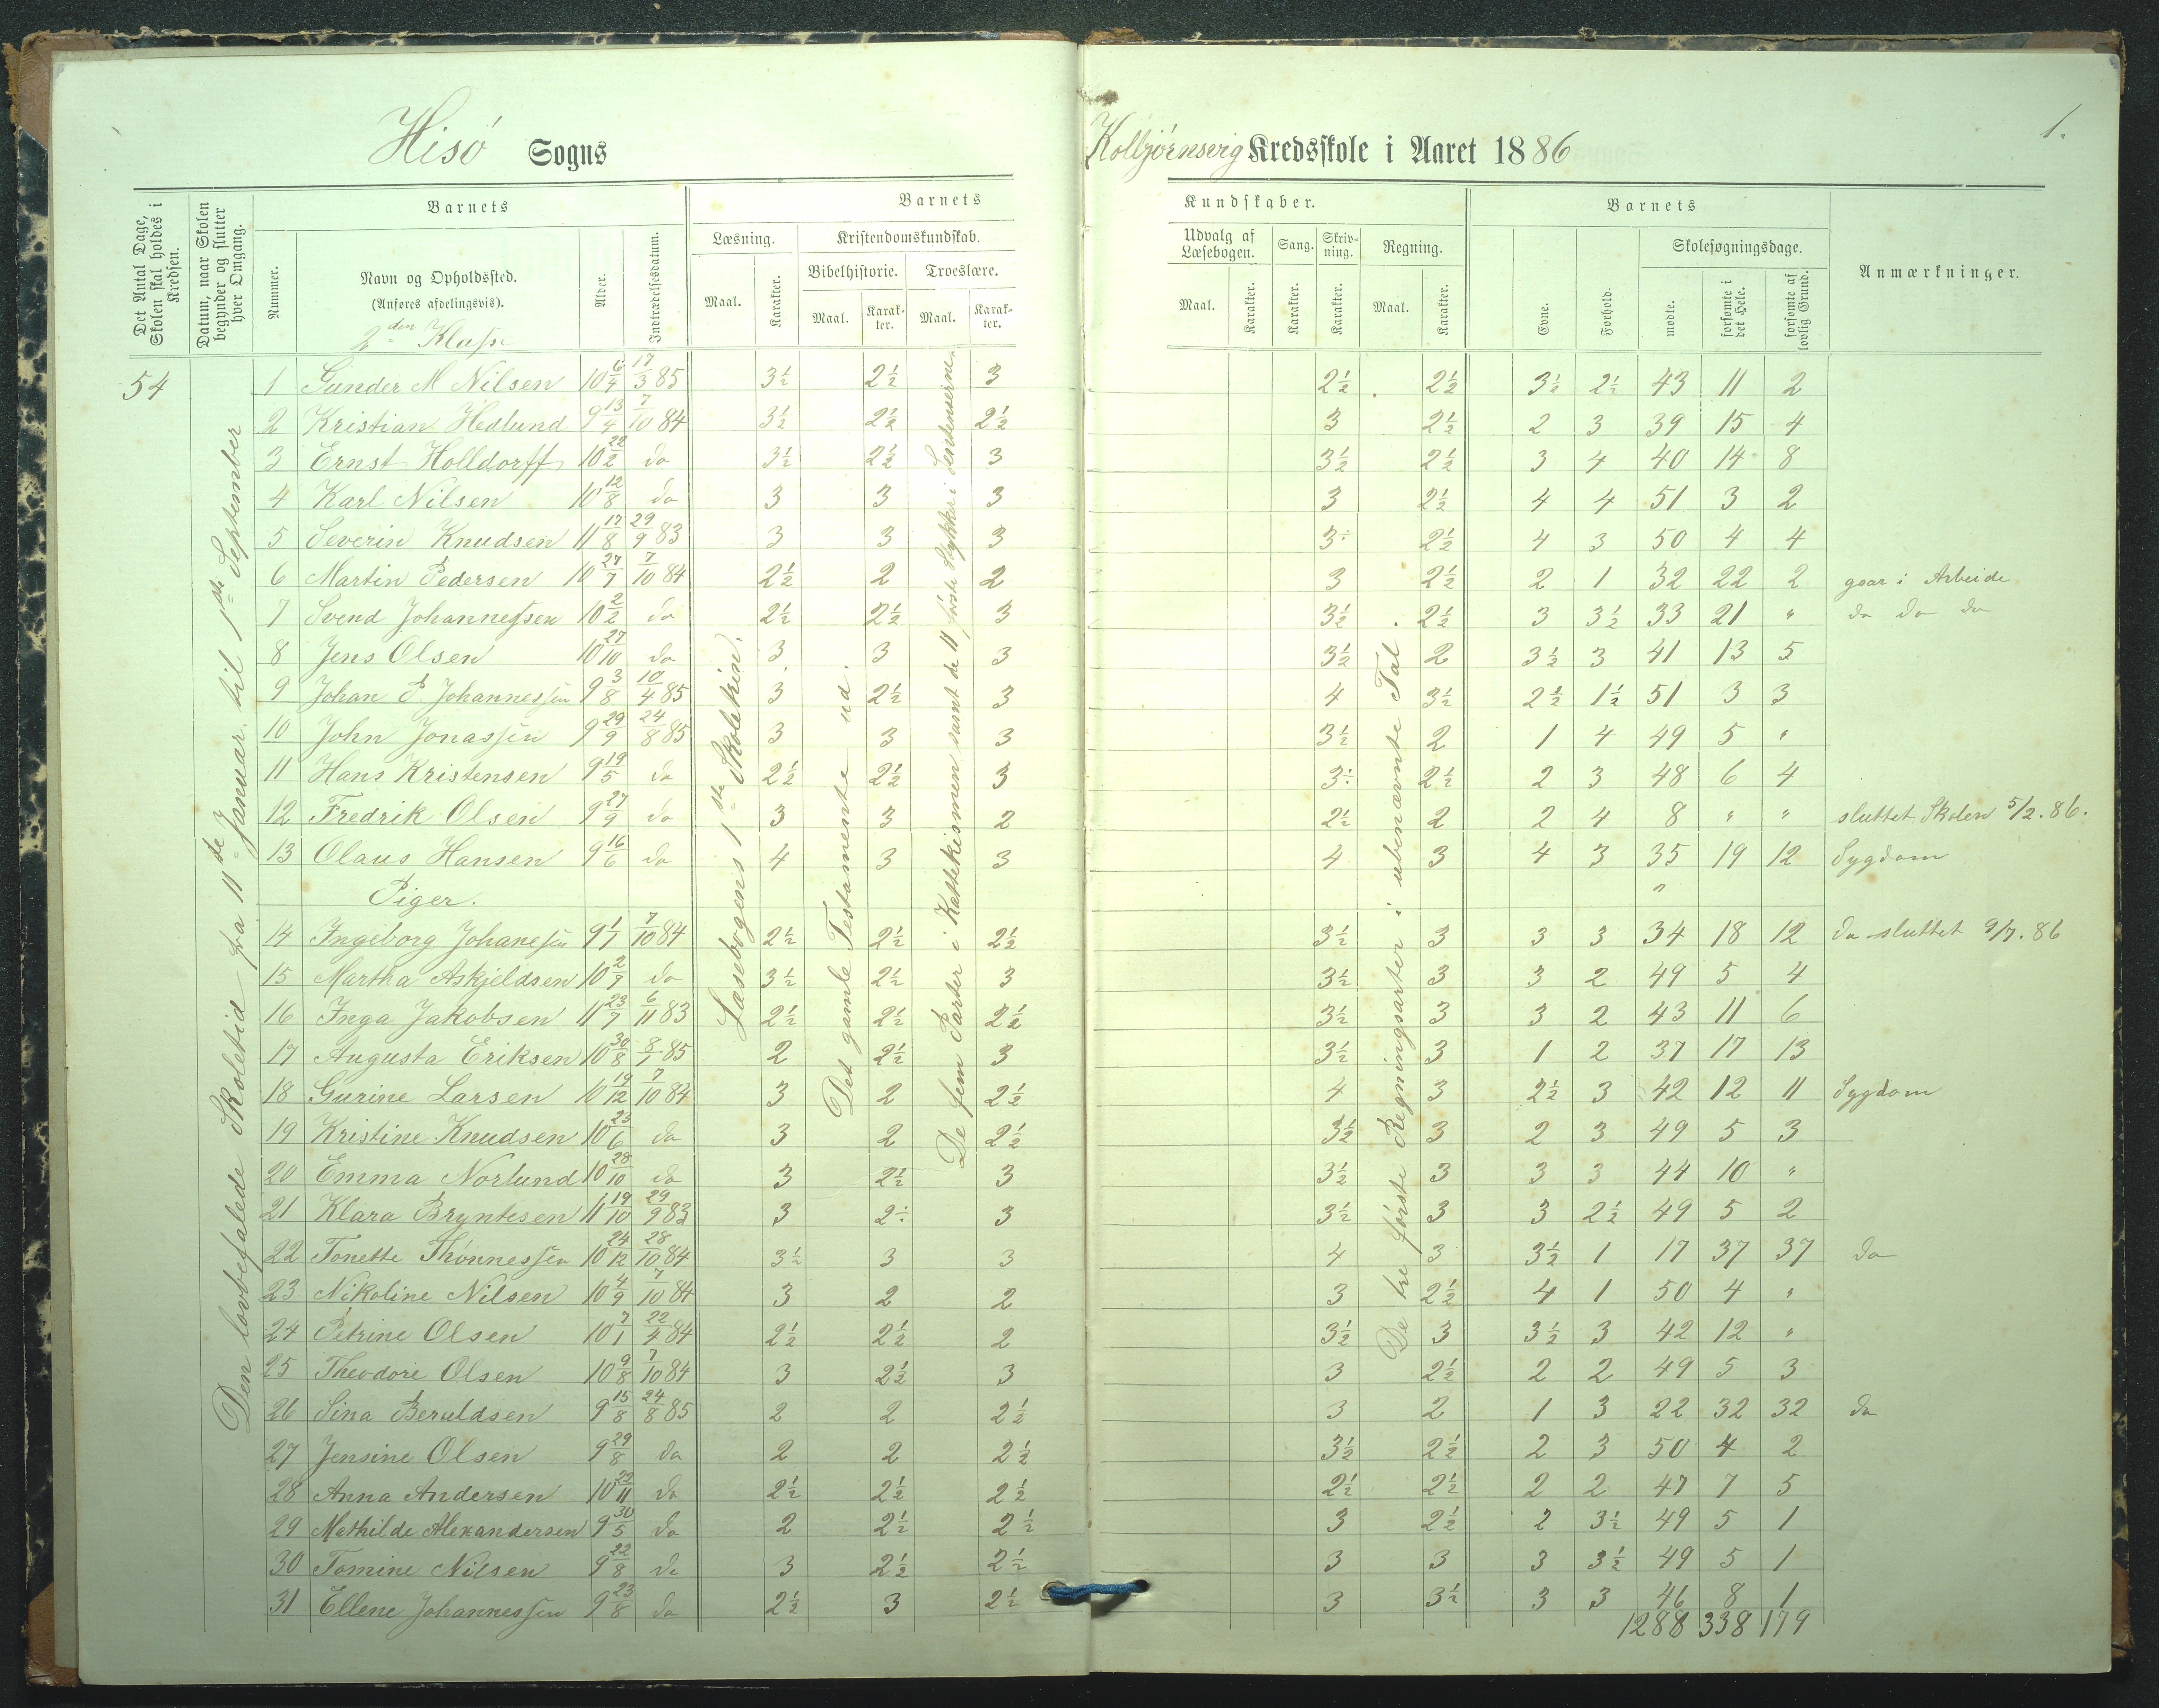 Hisö Sogns
Kolbjørnsvig Kredsskole i Aaret 1886
1.
Det Antal Dage, Skolen skal holdes i Kredsen.
Datum, naar Skolen begynder og slutter hver Omgang.
Nummer.
Barnets
Navn og Opholdssted.
(Anføres afdelingsvis).
2den Klasse
Alder.
Indtrædelsesdatum.
Barnets Kundskaber.
Læsning.
Maal.
Karakter.
Kristendomskundskab.
Bibelhistorie.
Maal.
Karakter.
Troeslære.
Maal.
Karakter.
Udvalg af Læsebogen.
Maal.
Karakter.
Sang.
Karakter.
Skrivning.
Karakter.
Regning.
Maal.
Karakter.
Barnets
Evne.
Forhold.
Skolesøgningsdage.
mødte.
forsømte i det Hele.
forsømte af lovlig Grund.
Anmærkninger.
54
Den lovbefalede Skoletid fra 11te Januar til 1ste September
Læsebogens 1ste Skoletrin.
Det gamle Testamente ud.
De fem Parter i Katekismen samt de 11 første Stykker i Sentenserne.
De tre første Regningsarter i ubenævnte Tal.
1 Gunder M Nilsen 10 6/4 17/3 85 3½ 2½ 3 2½ 2½ 3½ 2½ 43 11 2
2 Kristian Hedlund 9 13/4 7/10 84 3½ 2½ 2½ 3 2½ 2 3 39 15 4
3 Ernst Holldorff 10 22/2 do 3½ 2½ 3 3½ 2½ 3 4 40 14 8
4 Karl Nilsen 10 12/8 do 3 3 3 3 2½ 4 4 51 3 2
5 Severin Knudsen 11 17/8 29/9 83 3 3 3 3÷ 2½ 4 3 50 4 4
6 Martin Pedersen 10 27/7 7/10 84 2½ 2 2 3 2½ 2 1 32 22 2 gaar i Arbeide
7 Svend Johannessen 10 2/2 do 2½ 2½ 3 3½ 2½ 3 3½ 33 21 " do do do
8 Jens Olsen 10 27/10 do 3 3 3 3½ 2 3½ 3 41 13 5
9 Johan P Johannessen 9 3/8 10/4 85 3 2½ 3 4 3½ 2½ 1½ 51 3 3
10 John Jonassen 9 29/9 24/8 85 3 3 3 3½ 2 1 4 49 5 "
11 Hans Kristensen 9 19/5 do 2½ 2½ 3 3÷ 2½ 2 3 48 6 4
12 Fredrik Olsen 9 27/9 do 3 3 2 2½ 2 2 4 8 " " sluttet Skolen 5/2.86.
13 Olaus Hansen 9 16/6 do 4 3 3 4 3 4 3 35 19 12 Sygdom
Piger.
14 Ingeborg Johanesen 9 1/7 7/10 84 2½ 2½ 2½ 3½ 3 3 3 34 18 12 do sluttet 9/7.86
15 Martha Askjeldsen 10 2/7 do 3½ 2½ 3 3½ 3 3 2 49 5 4
16 Inga Jakobsen 11 23/7 6/11 83 2½ 2½ 2½ 3½ 3 3 2 43 11 6
17 Augusta Eriksen 10 30/8 8/1 85 2 2½ 3 3½ 3 1 2 37 17 13
18 Gurine Larsen 10 19/12 7/10 84 3 2 2½ 4 3 2½ 3 42 12 11 Sygdom
19 Kristine Knudsen 10 25/6 do 3 2 2½ 3½ 3 2 3 49 5 3
20 Emma Norlund 10 28/10 do 3 2½ 3 3½ 3 3 3 44 10 "
21 Klara Bryntesen 11 19/10 29/9 83 3 2÷ 3 3½ 3 3 2½ 49 5 2
22 Tonette Thønnessen 10 24/12 28/10 84 3½ 3 3 4 3 3½ 1 17 37 37 do
23 Nikoline Nilsen 10 4/9 7/10 84 3 2 2 3 2½ 4 1 50 4 "
24 Petrine Olsen 10 7/1 22/4 84 2½ 2½ 2 3½ 3 3½ 3 42 12 "
25 Theodore Olsen 10 9/8 7/10 84 3 2½ 3 3 2½ 2 2 49 5 3
26 Sina Beruldsen 9 15/8 24/8 85 2 2 2½ 3 2 1 3 22 32 32 do
27 Jensine Olsen 9 29/8 do 2 2 2½ 3½ 2½ 2 3 50 4 2
28 Anna Andersen 10 22/11 do 2½ 2½ 2½ 2½ 2½ 2 2 47 7 5
29 Mathilde Alexandersen 9 30/5 do 2 2½ 2½ 3 2½ 2 3½ 49 5 1
30 Tomine Nilsen 9 22/8 do 3 2½ 2½ 3 3 3 3½ 49 5 1
31 Ellene Johannessen 9 23/8 do 2½ 3 2½ 3 3½ 3 3 46 8 1
1288 338 179